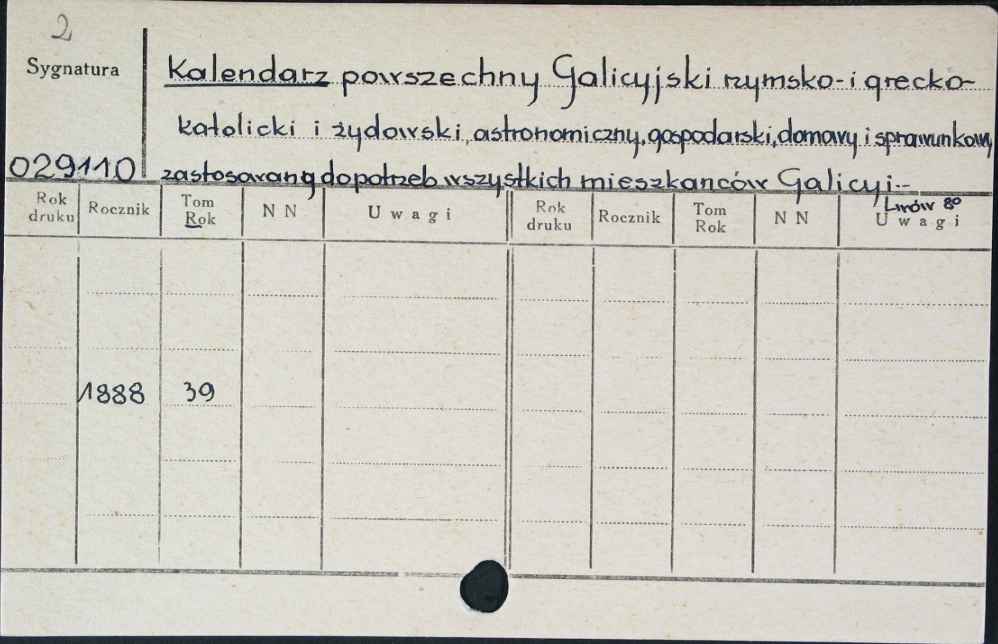 2
Sygnatura
Kalendarz powszechny Galicyjski rzymsko- i grecko-
katolicki i żydowski, astronomiczny, gospodarski, domowy i sprawunkowy
029110
zastosowany do potrzeb wszystkich mieszkańców Galicyi..
Lwów 8°
Rok druku Rocznik Tom Rok N N Uwagi Rok druku Rocznik Tom Rok N N Uwagi
1888 39